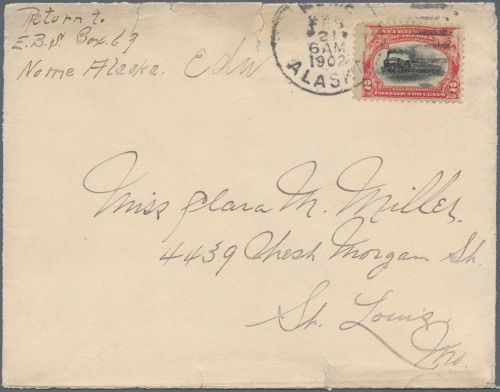 Return to
E.B.S. Box 63
Nome Alaska.
Edw
NOME
FEB
21
6 AM
1902
ALASKA
UNITED STATES
OF AMERICA
FAST EXPRESS
2 2
POSTAGE TWO CENTS
Miss Clara M. Miller.
4439 Chest Morgan St.
St. Louis,
Mo.